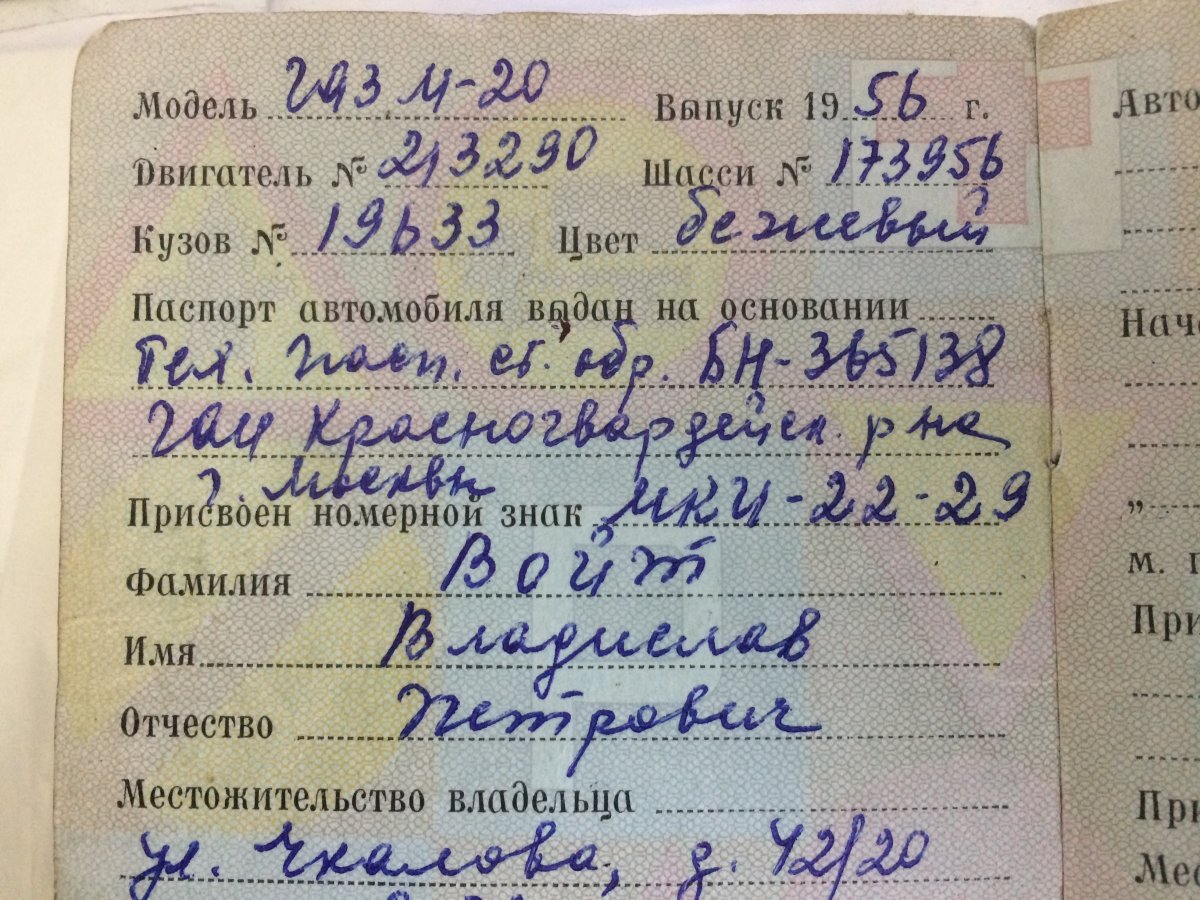 Модель ГАЗ М-20 Выпуск 1956 г.
Двигатель № 213290 Шасси № 173956
Кузов № 19633 Цвет бежевый
Паспорт автомобиля выдан на основании
Тех. пасп. ст. обр. БН-365138
ГАИ Красногвардейск. р-на
г. Москвы
Присвоен номерной знак МКЦ-22-29
Фамилия Войт
Имя Владислав
Отчество Петрович
Местожительство владельца
ул. Чкалова, д. 42/20
Авто
Нач
„
м. п
При
При
Мес